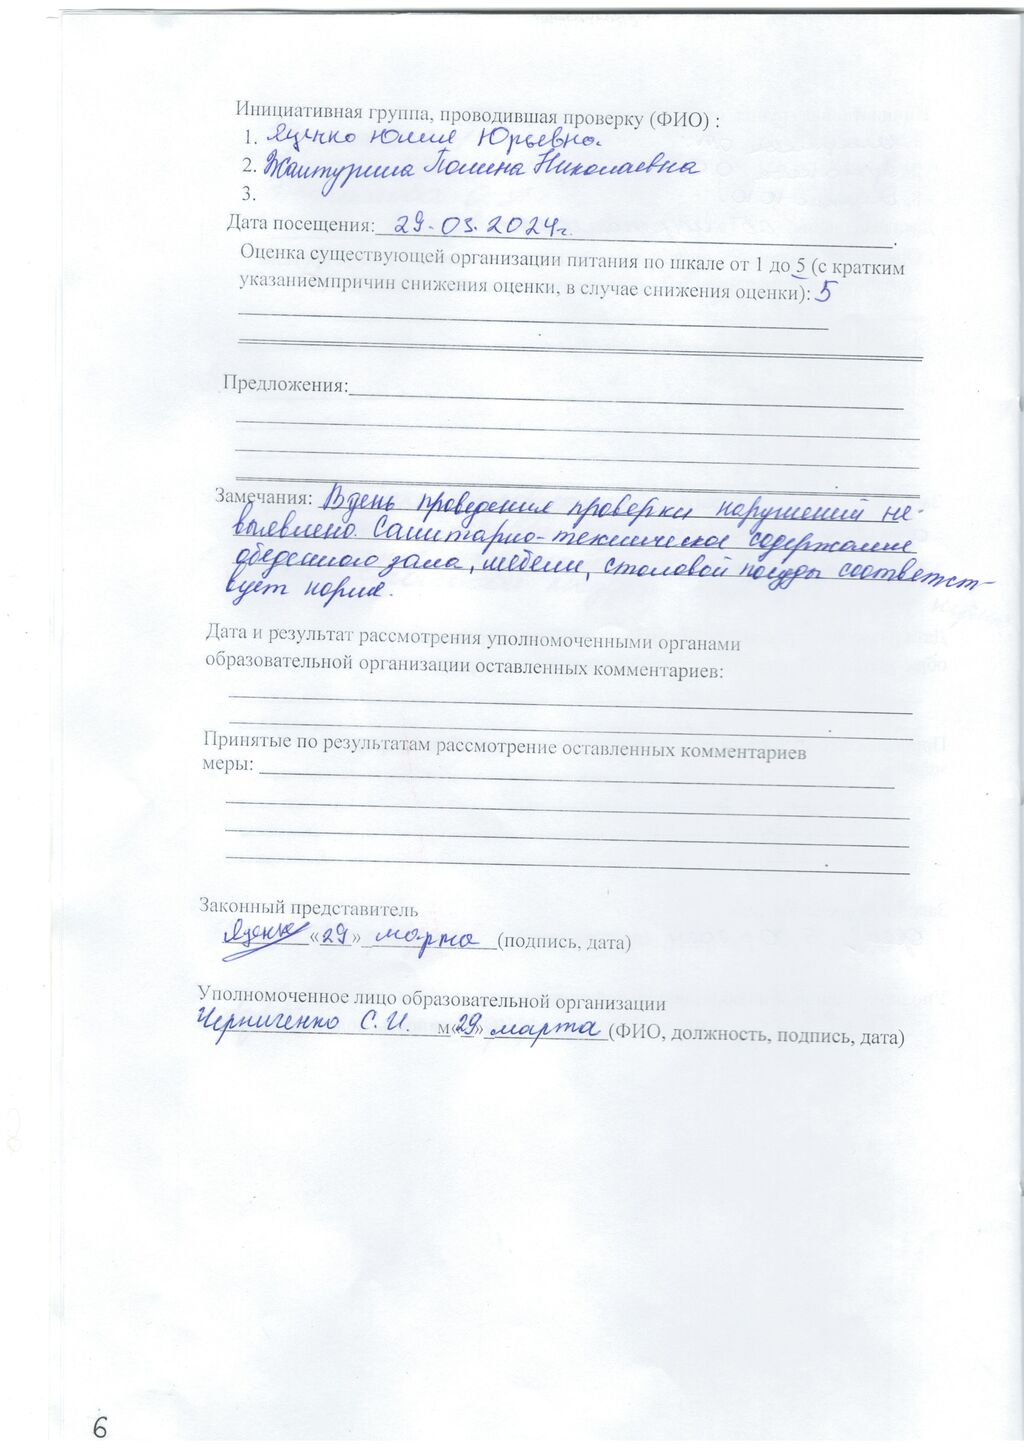 Инициативная группа, проводившая проверку (ФИО) :
1. Яценко Юлия Юрьевна.
2. Полина Николаевна
3.
Дата посещения: 29.03.2024г.
Оценка существующей организации питания по шкале от 1 до 5 (с кратким
указаниемпричин снижения оценки, в случае снижения оценки): 5
Предложения:
Замечания: В день проведения проверки нарушений не
выявлено. Санитарно-техническое содержание
обеденного зала, мебели, столовой посуды соответст-
вует норме.
Дата и результат рассмотрения уполномоченными органами
образовательной организации оставленных комментариев:
Принятые по результатам рассмотрение оставленных комментариев
меры:
Законный представитель
Яценко «29» марта (подпись, дата)
Уполномоченное лицо образовательной организации
Черниченко С.И. м«29» марта (ФИО, должность, подпись, дата)
6